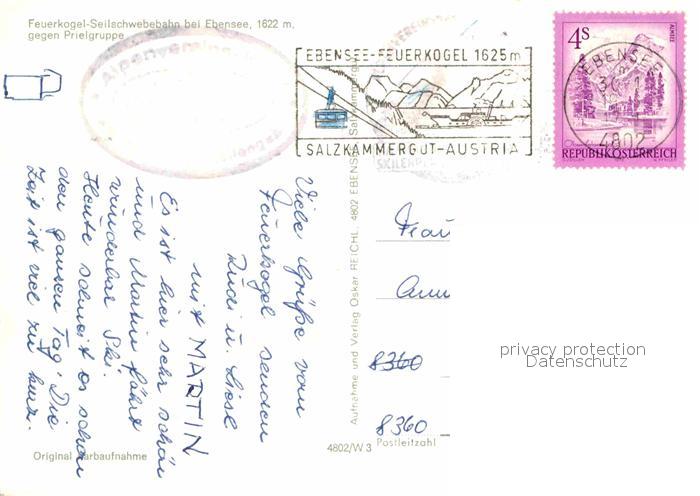 Feuerkogel-Seilschwebebahn bei Ebensee, 1622 m,
gegen Prielgruppe
EBENSEE-FEUERKOGEL 1625m
SALZKAMMERGUT-AUSTRIA
4S
ALMSEE
REPUBLIK ÖSTERREICH
EBENSEE
4802
Viele Grüße vom
Feuerkogel senden
Rudi u. Liesl
mit MARTIN
Es ist hier sehr schön
und Martin fährt
wunderbar Ski.
Heute schneit es schon
den ganzen Tag. Die
Zeit ist viel zu kurz.
Aufnahme und Verlag Oskar REICHL, 4802 EBENSEE
Frau
8360
8360
Postleitzahl
4802/W 3
Original Farbaufnahme
privacy protection
Datenschutz